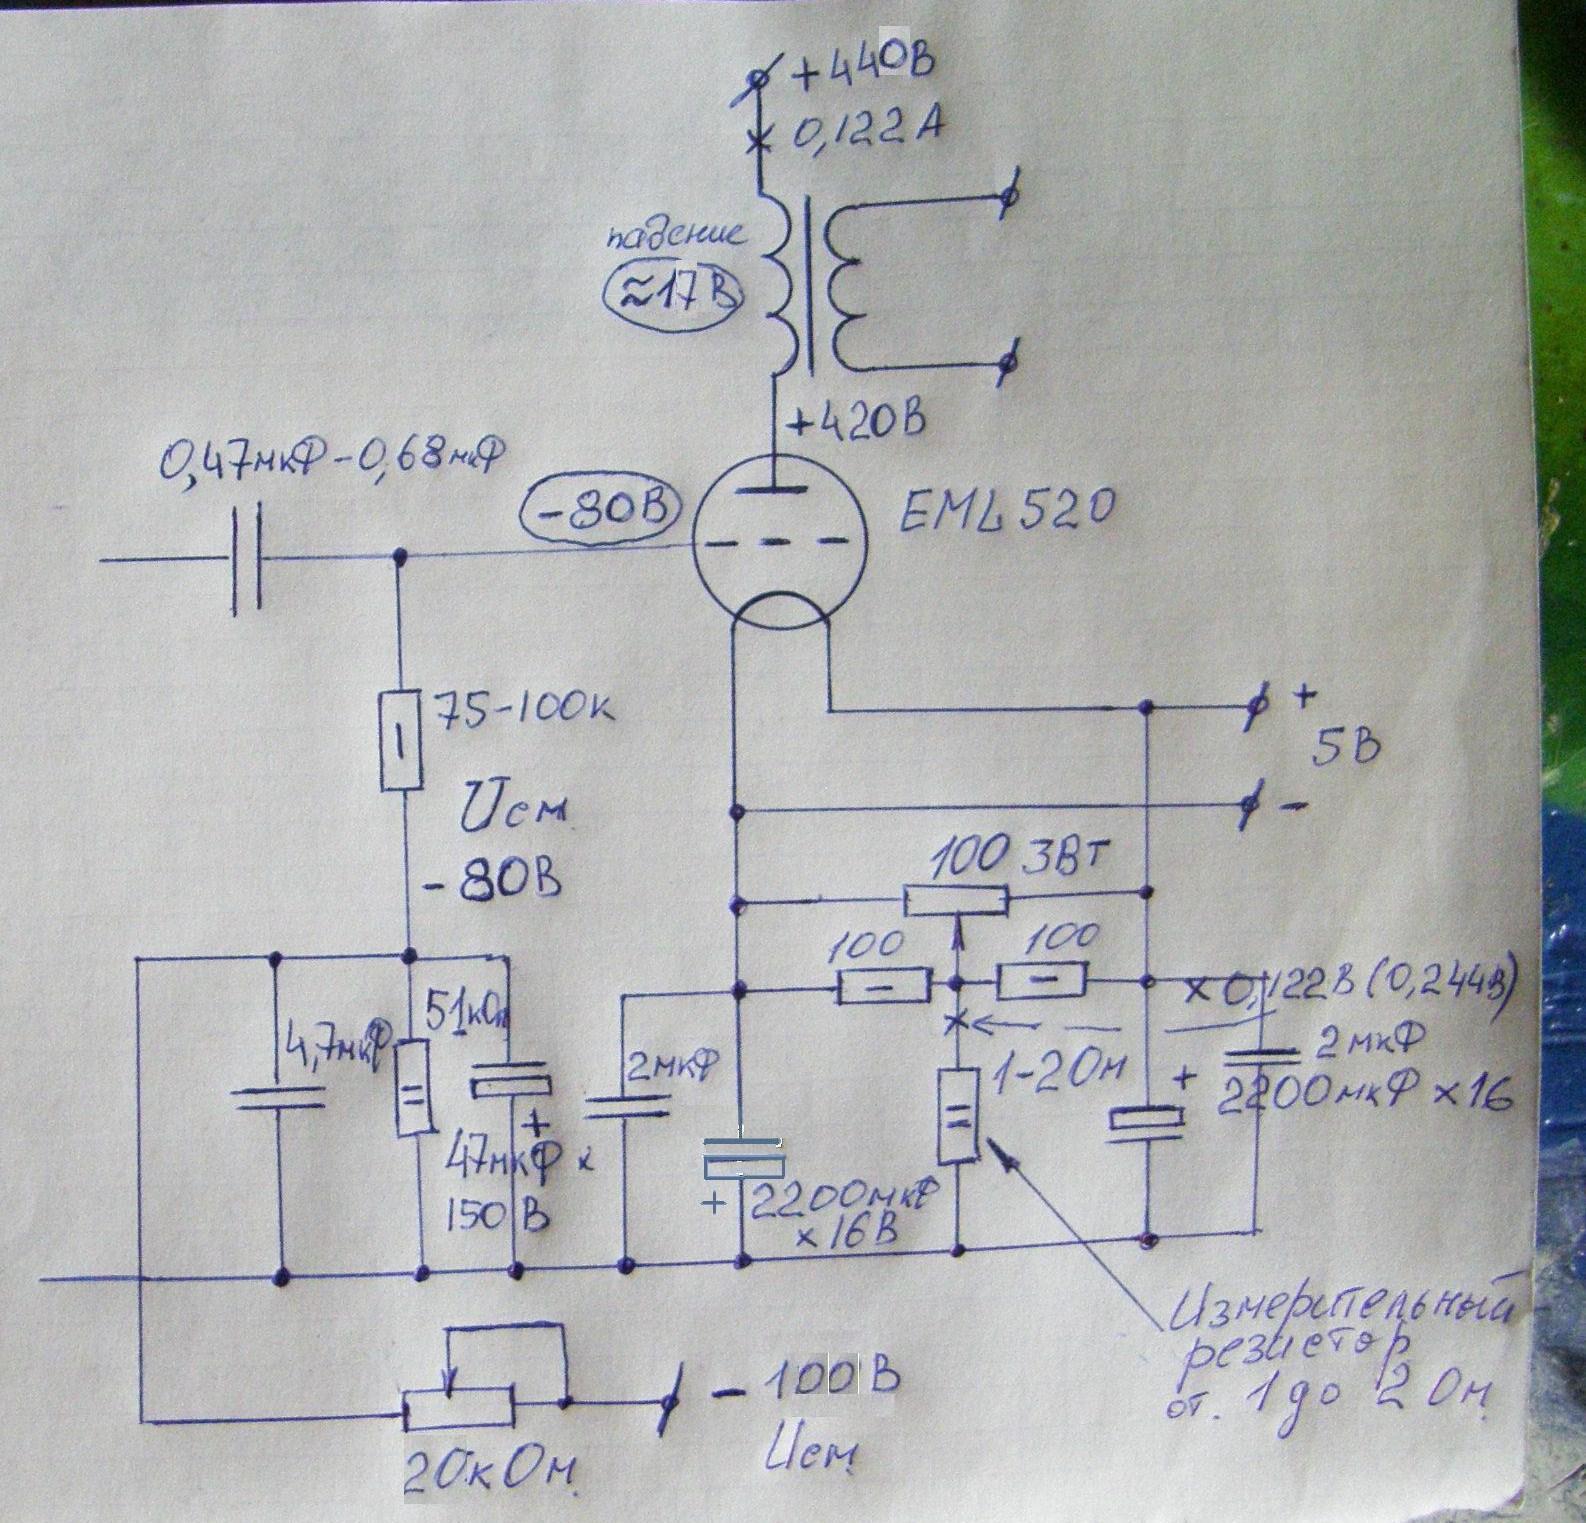 +440В
0,122А
падение
≈17В
+420В
0,47мкФ-0,68мкФ
-80В
EML520
75-100к
Uсм
-80В
+
5В
-
100 3Вт
100
100
× 0,122В (0,244В)
51кОм
4,7мкФ
2мкФ
1-2Ом
2мкФ
+
2200мкФ ×16
+
47мкФ ×
150В
+
2200мкФ
×16В
Измерительный
резистор
от. 1 до 2 Ом
- 100В
Uсм
20кОм